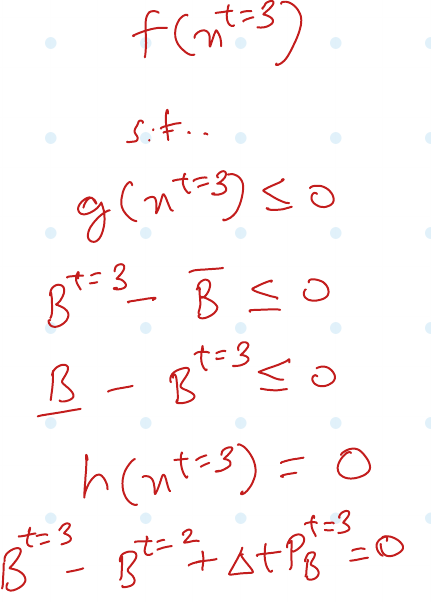 f(x^{t=3})
s.t..
g(x^{t=3}) ≤ 0
B^{t=3} - \overline{B} ≤ 0
\underline{B} - B^{t=3} ≤ 0
h(x^{t=3}) = 0
B^{t=3} - B^{t=2} + Δt P_B^{t=3} = 0